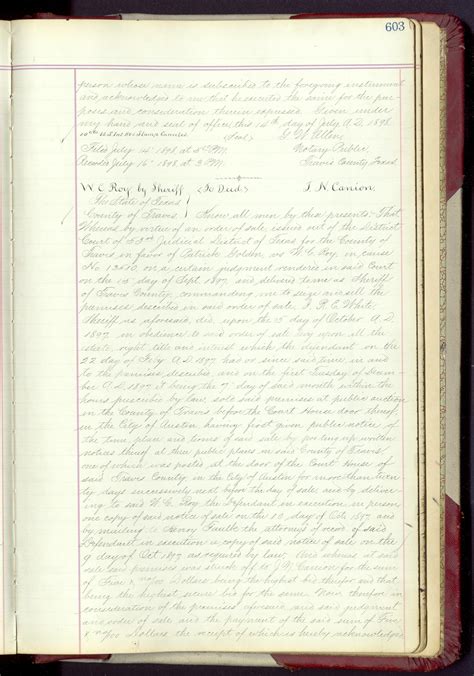 603
person whose name is subscribed to the foregoing instrument
and acknowledged to me that he executed the same for the pur
poses and consideration therein expressed. Given under
my hand and seal of office this 14th day of July A.D. 1898.
Seal G. W. Allen
Filed July 14" 1898 at 3 P.M. Notary Public,
Recorded July 16" 1898 at 3 P.M. Travis County, Texas.
W. C. Roy by Sheriff (To Deed) J. N. Canion.
The State of Texas
County of Travis Know all men by these presents: That
Whereas by virtue of an order of sale, issued out of the District
Court of 53rd Judicial District of Texas for the County of
Travis in favor of Patrick vs W. C. Roy, in cause
No. on a certain judgment rendered in said Court
on the day of Sept. 1897 and delivered to me as Sheriff
of Travis County, commanding me to seize and sell the
premises described in said order of sale, I, R. E. White,
Sheriff as aforesaid, did, upon the 5" day of October A.D.
1897 in obedience to said order of sale levy upon all the
estate, right title and interest which the defendant on the
22 day of Feby A.D. 1897 had or since said time in and
to the premises described, and on the first Tuesday of Decem
ber A.D. 1897 it being the 7" day of said month within the
hours prescribed by law sold said premises at public auction
in the County of Travis before the Court House door thereof,
in the City of Austin having first given public notice of
the time place and terms of said sale by posting up written
notices thereof at three public places in said County of Travis
one of which was posted at the door of the Court House of
said Travis County, in the City of Austin for more than twen
ty days successively next before the day of sale, and by deliver
ing to said W. C. Roy the Defendant in execution in person
one copy of said notice of sale on the day of Oct. 1897 and
by mailing to Henry Faulk the attorney of record of said
Defendant in execution a copy of said notice of sale on the
9 day of Oct 1897, as required by law, And whereas at said
sale said premises was struck off to J. N. Canion for the sum
of Five & no/100 Dollars being the highest bid therefor and that
being the highest secure bid for the same. Now, therefore in
consideration of the premises aforesaid and said judgment
and order of sale and the payment of the said sum of Five
& no/100 Dollars the receipt of which is hereby acknowledged